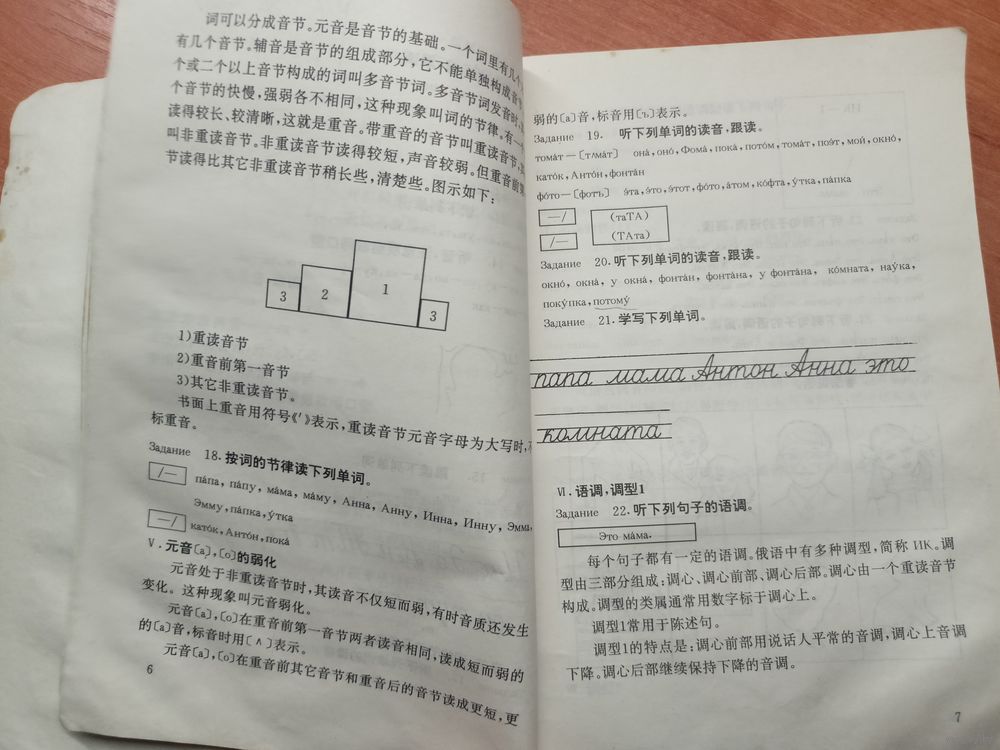 词可以分成音节。元音是音节的基础。一个词里有几个
有几个音节。辅音是音节的组成部分，它不能单独构成音
个或二个以上音节构成的词叫多音节词。多音节词发音时，
个音节的快慢，强弱各不相同，这种现象叫词的节律。有一
读得较长、较清晰，这就是重音。带重音的音节叫重读音节，
叫非重读音节。非重读音节读得较短，声音较弱。但重音前第
节读得比其它非重读音节稍长些，清楚些。图示如下：
3 2 1 3
1)重读音节
2)重音前第一音节
3)其它非重读音节。
书面上重音用符号《′》表示，重读音节元音字母为大写时，
标重音。
Задание 18.按词的节律读下列单词。
—́/— па́па, па́пу, ма́ма, ма́му, Анна, Анну, Инна, Инну, Эмма,
Эмму, па́пка, у́тка
—/ като́к, Анто́н, пока́
Ⅴ.元音〔a〕,〔o〕的弱化
元音处于非重读音节时，其读音不仅短而弱，有时音质还发生
变化。这种现象叫元音弱化。
元音〔a〕,〔o〕在重音前第一音节两者读音相同，读成短而弱的
的〔a〕音，标音时用〔ʌ〕表示。
元音〔a〕,〔o〕在重音前其它音节和重音后的音节读成更短，更
6
弱的〔a〕音，标音用〔ъ〕表示。
Задание 19. 听下列单词的读音，跟读。
тома́т—〔тʌма́т〕 она́, оно́, Фома́, пока́, пото́м, тома́т, поэ́т, мой, окно́,
като́к, Анто́н, фонта́н
фо́то—〔фотъ〕 э́та, э́то, э́тот, фо́то, а́том, ко́фта, у́тка, па́пка
—/ (таТА)
/— (ТАта)
Задание 20.听下列单词的读音，跟读。
окно́, окна́, у окна́, фонта́н, фонта́на, у фонта́на, ко́мната, нау́ка,
поку́пка, потому́
Задание 21.学写下列单词。
папа мама Антон Анна это
комната
Ⅵ.语调，调型1
Задание 22.听下列句子的语调。
Это ма́ма.
每个句子都有一定的语调。俄语中有多种调型，简称 ИК。调
型由三部分组成：调心、调心前部、调心后部。调心由一个重读音节
构成。调型的类属通常用数字标于调心上。
调型1常用于陈述句。
调型1的特点是：调心前部用说话人平常的音调，调心上音调
下降。调心后部继续保持下降的音调。
7